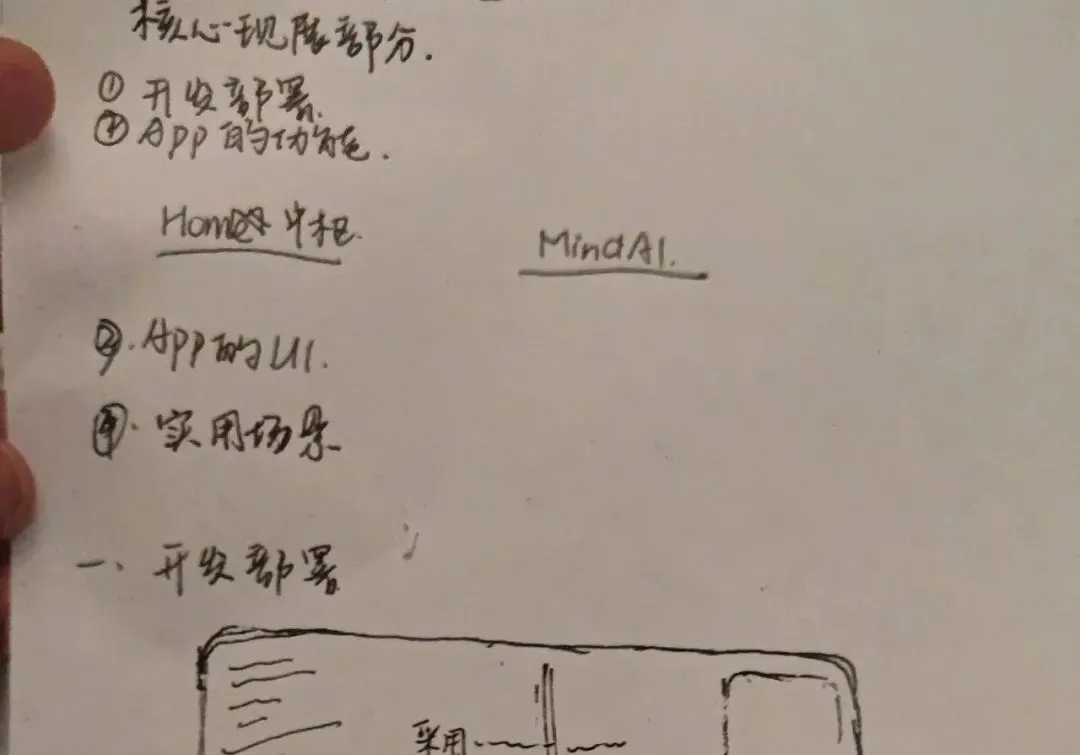 核心现展部分.
① 开发部署.
② App的功能.
Home 中枢. MindAI.
③. App的UI.
④. 实用场景
一、开发部署
采用